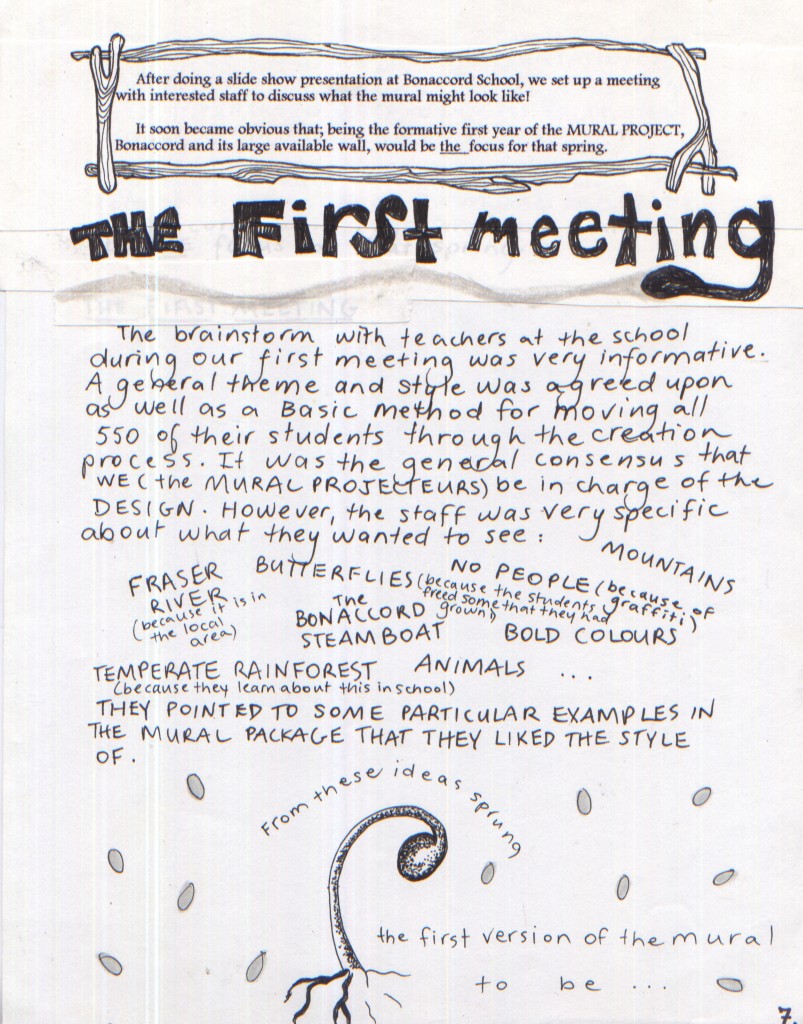 After doing a slide show presentation at Bonaccord School, we set up a meeting
with interested staff to discuss what the mural might look like!
It soon became obvious that; being the formative first year of the MURAL PROJECT,
Bonaccord and its large available wall, would be the focus for that spring.
THE First meeting
THE FIRST MEETING
The brainstorm with teachers at the school
during our first meeting was very informative.
A general theme and style was agreed upon
as well as a Basic method for moving all
550 of their students through the creation
process. It was the general consensus that
WE (the MURAL PROJECTEURS) be in charge of the
DESIGN. However, the staff was very specific
about what they wanted to see:
MOUNTAINS
FRASER
RIVER
(because it is in
the local
area)
BUTTERFLIES
(because the students
freed some that they had
grown)
NO PEOPLE (because of
graffiti)
The
BONACCORD
STEAMBOAT
BOLD COLOURS
TEMPERATE RAINFOREST
(because they learn about this in school)
ANIMALS ...
THEY POINTED TO SOME PARTICULAR EXAMPLES IN
THE MURAL PACKAGE THAT THEY LIKED THE STYLE
OF.
From these ideas sprung
the first version of the mural
to be ...
7.